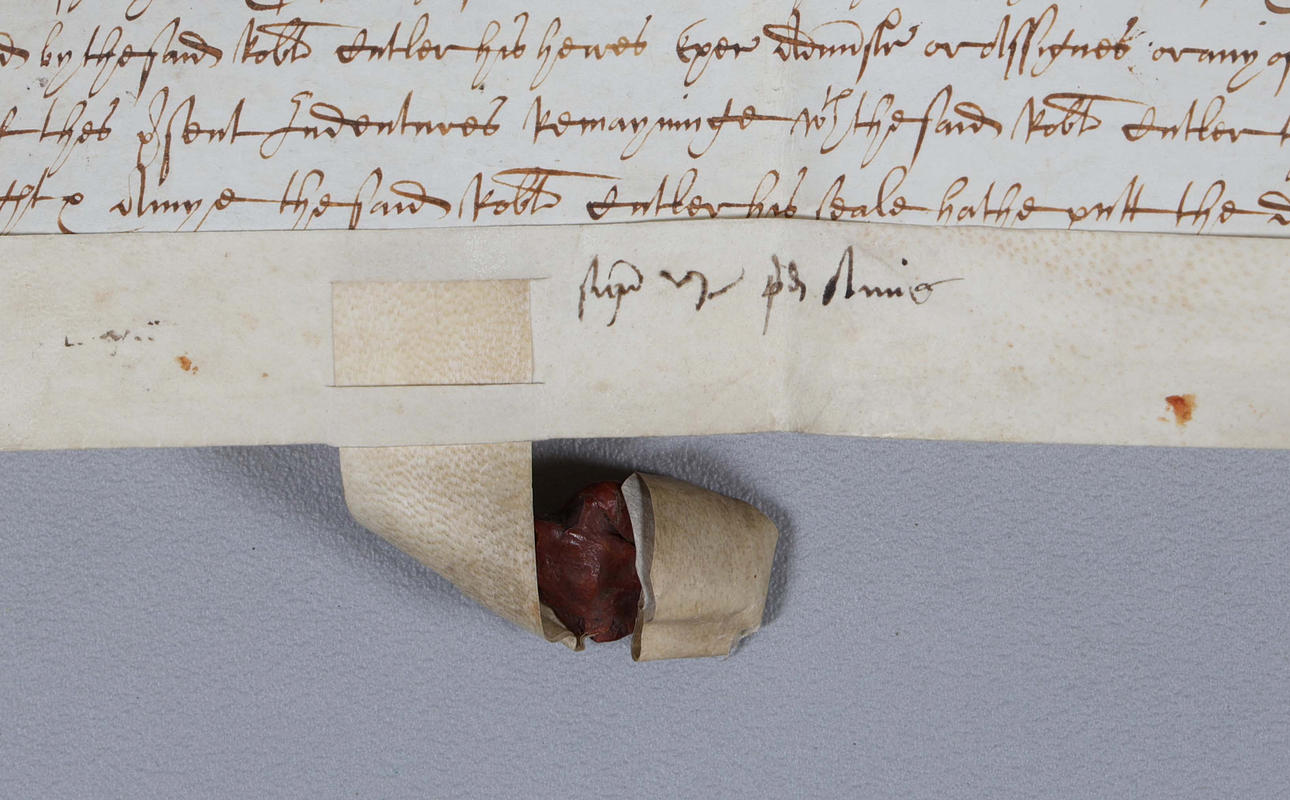 d by the said Robt Cutler his heires Exer Adminstr or Assignes or any of
thes psent Indentures Remayninge wth the said Robt Cutler
Amye the said Robt Cutler his seale hathe putt the d
Amie